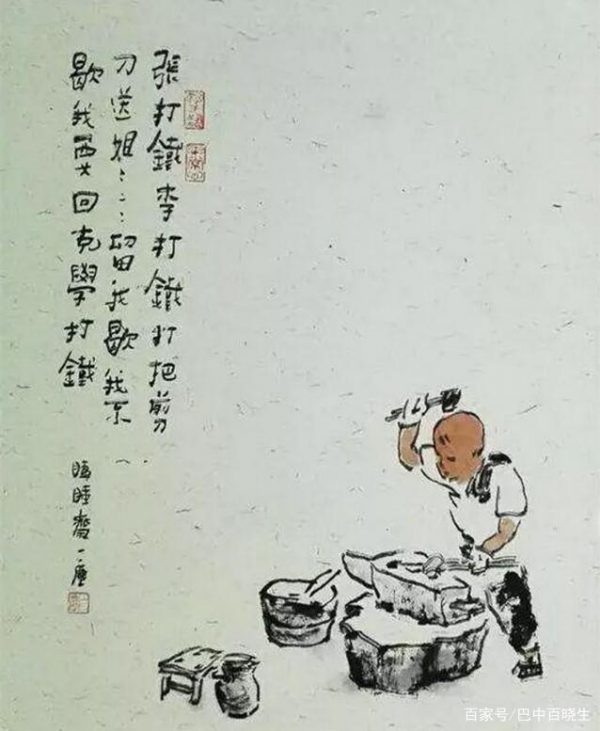 張打鐵李打鐵打把剪
刀送姐：二：留我歇我不
歇我要回克學打鐵
睡齋一
百家号/巴中百晓生